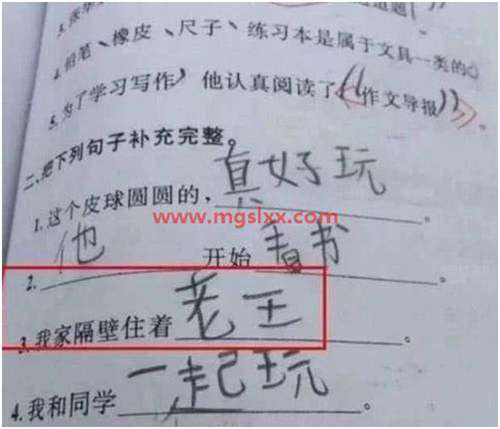 4.铅笔、橡皮、尺子、练习本是属于文具一类的。
5.为了学习写作，他认真阅读了《作文导报》。
二、把下列句子补充完整。
1.这个皮球圆圆的，真好玩。
www.mgslxx.com
2.他开始看书。
3.我家隔壁住着老王。
4.我和同学一起玩。